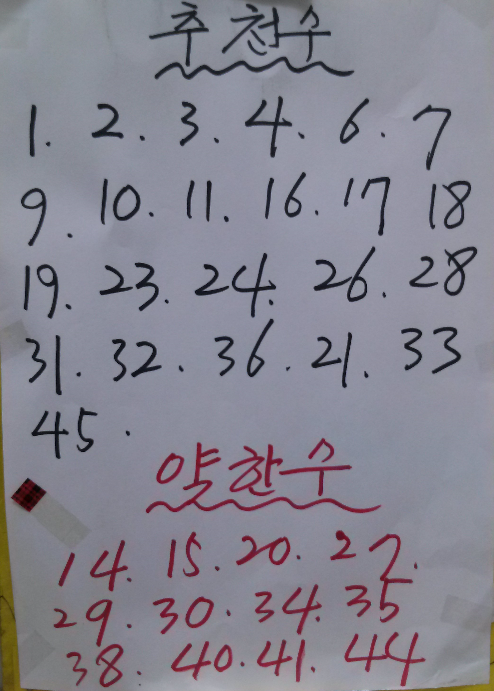 추천수
1. 2. 3. 4. 6. 7
9. 10. 11. 16. 17 18
19. 23. 24. 26. 28
31. 32. 36. 21. 33
45.
약한수
14. 15. 20. 27.
29. 30. 34. 35
38. 40. 41. 44